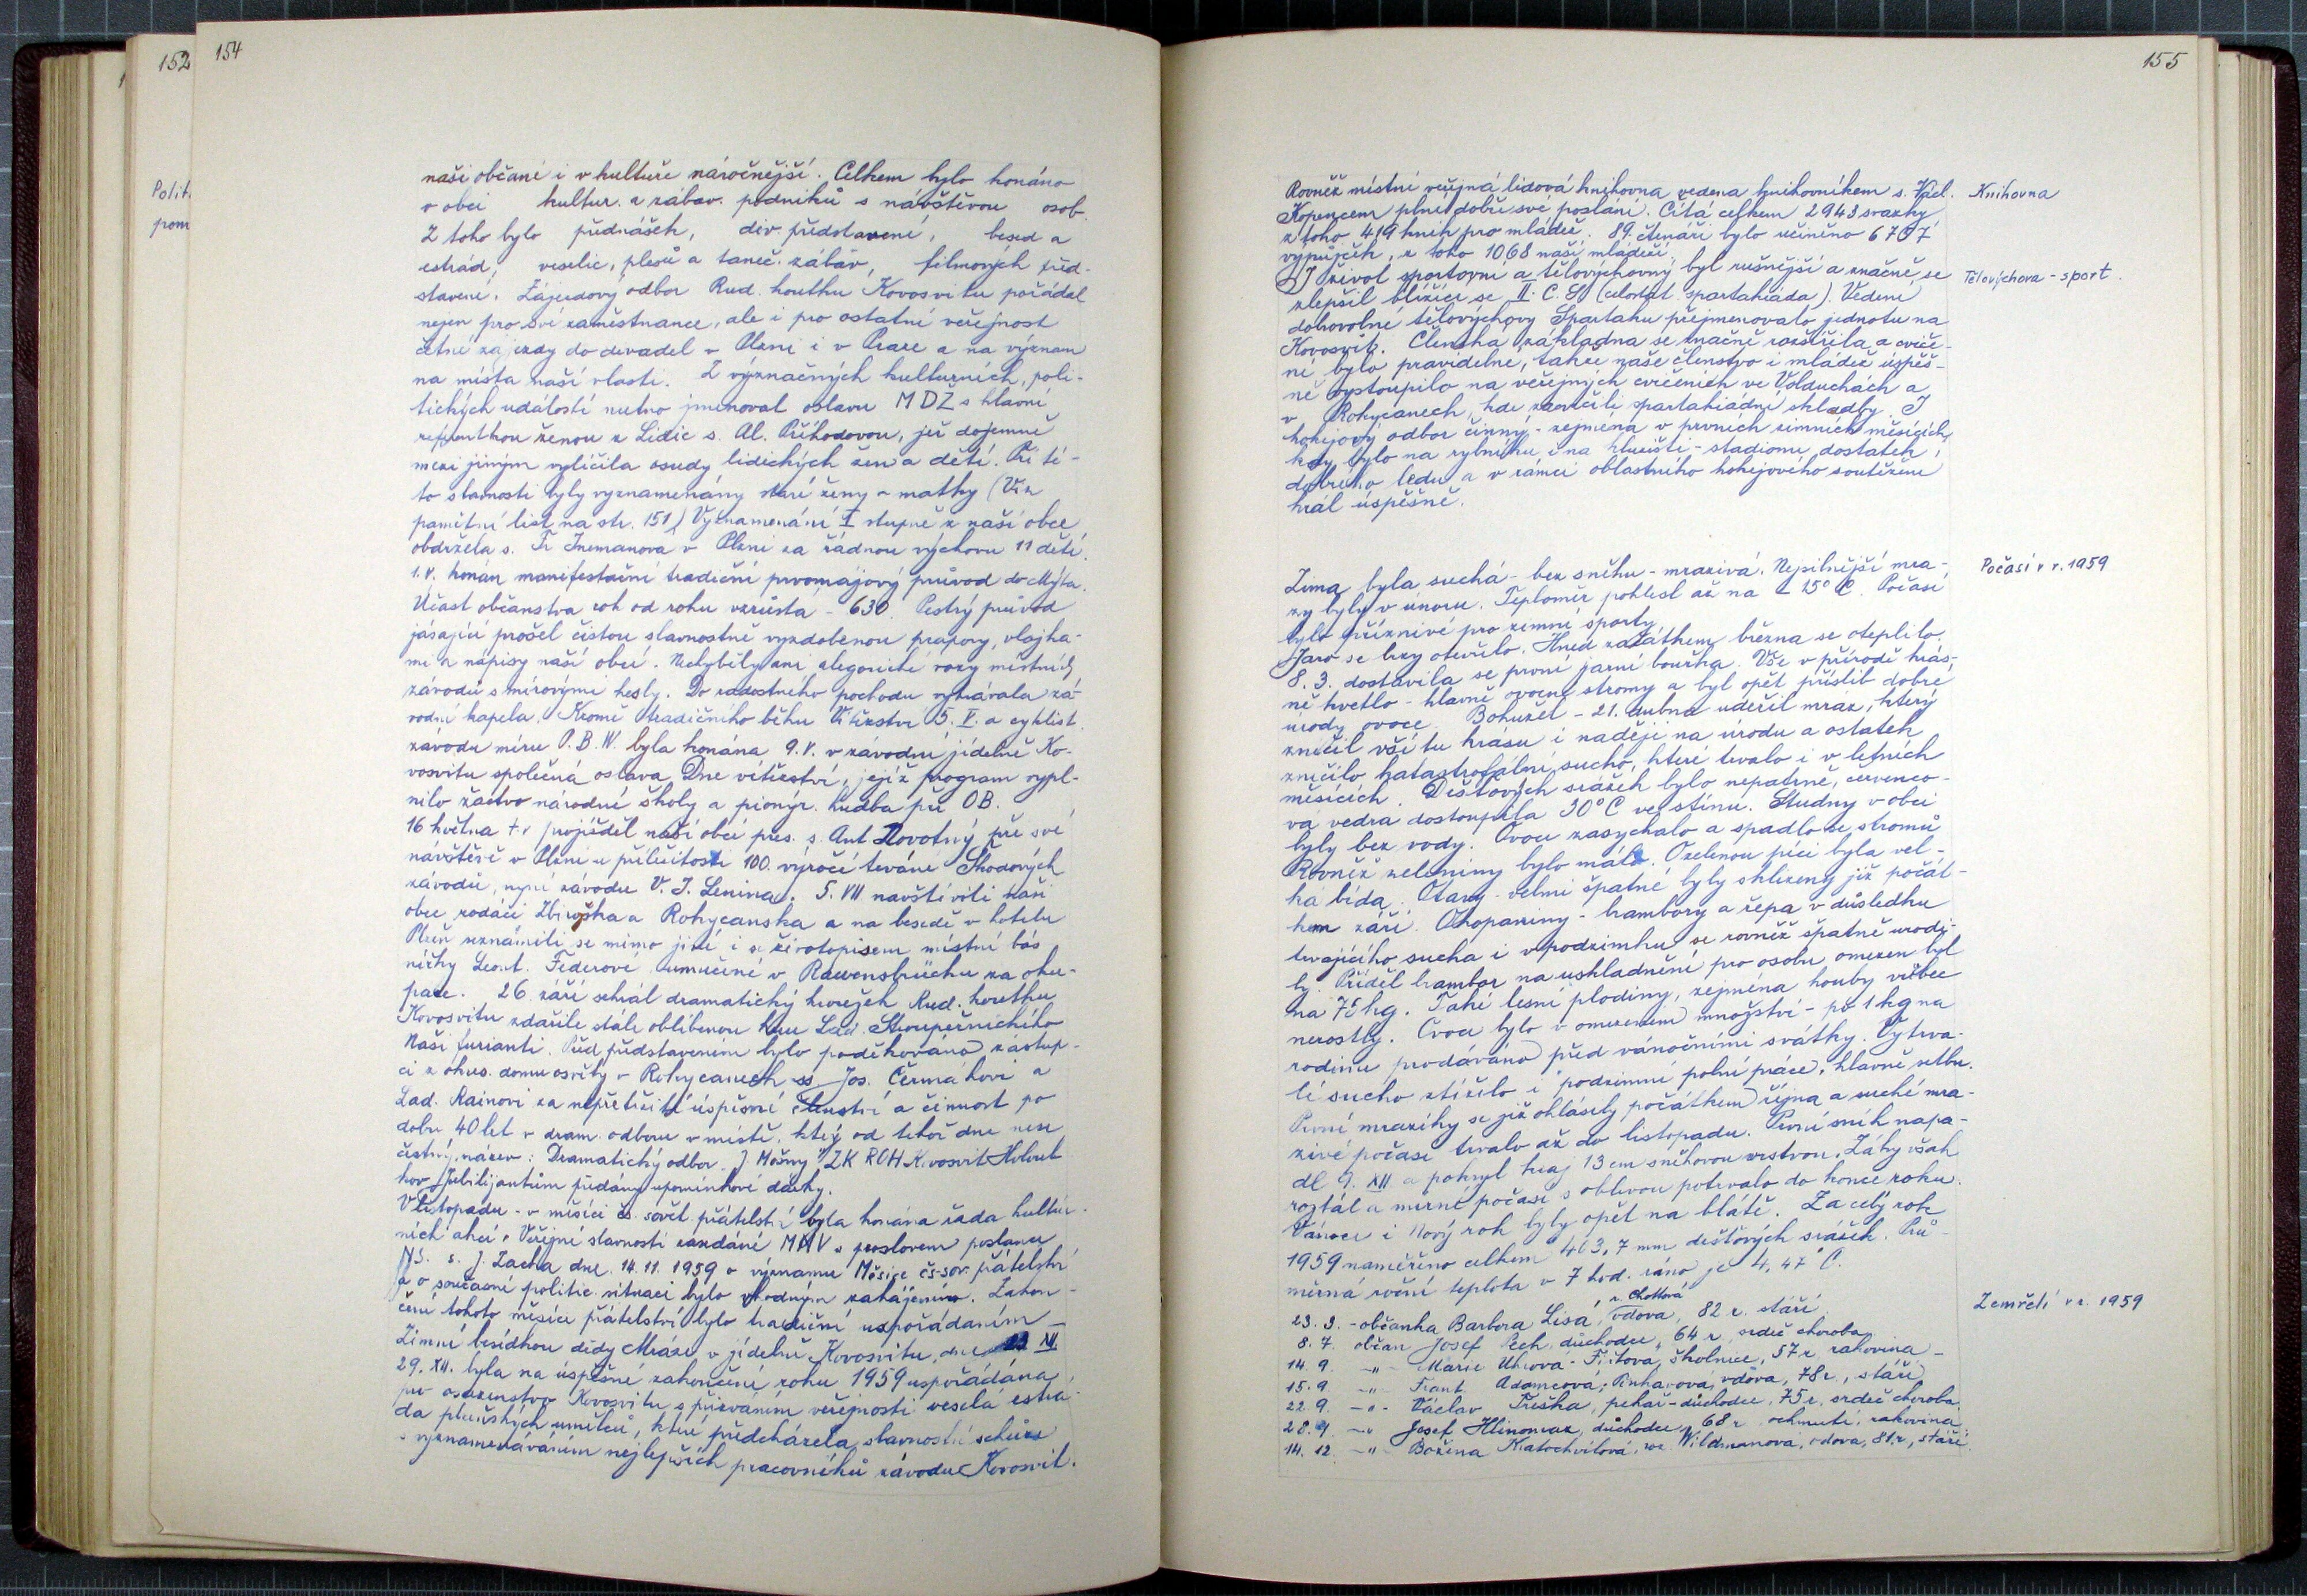 152
154
Polit.
pom
naši občané i v kultuře náročnější. Celkem bylo konáno
v obci kultur. a zábav. podniků s návštěvou osob.
Z toho bylo přednášek, div. představení, besed a
estrád, veselic, plesů a taneč. zábav, filmových před-
stavení. Zájezdový odbor Rud. koutku Kovosvitu pořádal
nejen pro své zaměstnance, ale i pro ostatní veřejnost
četné zájezdy do divadel v Plzni i v Praze a na význam
na místa naší vlasti. Z význačných kulturních, poli-
tických událostí nutno jmenovat oslavu MDŽ s hlavní
referentkou ženou z Lidic s. Al. Příhodovou, jež dojemně
mezi jiným vylíčila osudy lidických žen a dětí. Při té-
to slavnosti byly vyznamenány staré ženy - matky (Viz
pamětní list na str. 151) Vyznamenání I stupně z naší obce
obdržela s. Fr Inemanova v Plzni za řádnou výchovu 11 dětí.
1.V. konán manifestační tradiční prvomájový průvod do Mýta.
Účast občanstva rok od roku vzrůstá - 630. Pestrý průvod
jásající prošel čistou slavnostně vyzdobenou prapory, vlajka-
mi a nápisy naší obcí. Nechyběly ani alegorické vozy místních
závodů s mírovými hesly. Do radostného pochodu vyhrávala zá-
vodní kapela. Kromě tradičního běhu Vítězství 5. V. a cyklist.
závodu míru P.B.W. byla konána 9.V. v závodní jídelně Ko-
vosvitu společná oslava Dne vítězství, jejíž program vypl-
nilo žactvo národní školy a pionýr. hudba při OB.
16 května t.r projížděl naší obcí pres. s. Ant Novotný při své
návštěvě v Plzni u příležitosti 100. výročí trvání Škodových
závodů, nyní závodu V. I. Lenina. 5. VII navštívili naši
obec rodáci Zbirožska a Rokycanska a na besedě v hotelu
Plzeň seznámili se mimo jiné i se životopisem místní bás
nířky Leont. Federové umučené v Rawensbrücku za oku-
pace. 26. září sehrál dramatický kroužek Rud. koutku
Kovosvitu zdařile stále oblíbenou hru Lad. Stroupežnického
Naši furianti. Před představením bylo poděkováno zástup-
ci z okres. domu osvěty v Rokycanech ss Jos. Čermákovi a
Lad. Rainovi za nepřetržité úspěšné členství a činnost po
dobu 40 let v dram. odboru v místě. který od téhož dne nese
čestný název: Dramatický odbor J. Mošny ZK ROH Kovosvit Holoub
kov Jubilijantům předány upomínkové dárky.
V listopadu - v měsíci čs. sovět. přátelství byla konána řada kultur-
ních akcí. Veřejné slavnostní zasedání MNV s proslovem poslance
NS. s. J. Zacha dne 14.11.1959 o významu Měsíce čs-sov. přátelství
a o současné politic. situaci bylo vhodným zahájením. Zakon-
čení tohoto měsíce přátelství bylo tradiční uspořádáním
Zimní besídkou dědy Mráze v jídelně Kovosvitu, dne XII.
29. XII. byla na úspěšné zakončení roku 1959 uspořádána
pro osazenstvo Kovosvitu s přizváním veřejnosti veselá estrá-
da plzeňských umělců, které předcházela slavnostní schůze
s vyznamenáváním nejlepších pracovníků závodu Kovosvit.
155
Rovněž místní veřejná lidová knihovna vedena knihovníkem s. Václ. Knihovna
Kopencem plní dobře své poslání. Čítá celkem 2943 svazky
z toho 419 knih pro mládež. 89. čtenáři bylo učiněno 6707
výpůjček, z toho 1068 naší mládeží.
I život sportovní a tělovýchovný byl rušnější a značně se Tělovýchova - sport.
zlepšil blížící se II. C. S (celostát. spartakiáda). Vedení
dobrovolné tělovýchovy Spartaku přejmenovalo jednotu na
Kovosvit. Členská základna se značně rozšířila a cviče-
ní bylo pravidelné, takže naše členstvo i mládež úspěš-
ně vystoupilo na veřejných cvičeních ve Volduchách a
v Rokycanech, kde zacvičili spartakiádní skladby. I
hokejový odbor činný - zejména v prvních zimních měsících,
kdy bylo na rybníku i na hřišti - stadionu dostatek
dobrého ledu a v rámci oblastního hokejového soutěžení
hrál úspěšně.
Zima byla suchá - bez sněhu - mrazivá. Nejsilnější mra- Počasí v r. 1959
zy byly v únoru. Teploměr pohlesl až na - 25° C. Počasí
bylo příznivé pro zemní sporty.
Jaro se brzy otevřelo. Hned začátkem března se oteplilo.
8. 3. dostavila se první jarní bouřka. Vše v přírodě krás-
ně kvetlo - hlavně ovocné stromy a byl opět příslib dobré
úrody ovoce. Bohužel - 21. dubna udeřil mráz, který
zničil vši tu krásu i naději na úrodu a ostatek
zničilo katastrofální sucho, které trvalo i v letních
měsících. Dešťových srážek bylo nepatrně, červenco-
vá vedra dostoupila 30° C ve stínu. Studny v obci
byly bez vody. Ovoce zasychalo a spadlo se stromů
Rovněž zeleniny bylo málo. O zelenou píci byla vel-
ká bída. Otavy velmi špatné byly sklizeny již počát-
kem září. Okopaniny - brambory a řepa v důsledku
trvajícího sucha i v podzimku se rovněž špatně urodi-
ly. Příděl brambor na uskladnění pro osobu omezen byl
na 75 kg. Také lesní plodiny, zejména houby vůbec
nerostly. Ovoce bylo v omezeném množství - po 1 kg na
rodinu prodáváno před vánočními svátky. Vytrva-
lé sucho ztížilo i podzimní polní práce, hlavně setbu.
První mrazíky se již ohlásily počátkem října a suché mra-
zivé počasí trvalo až do listopadu. První sníh napa-
dl 9. XII a pokryl kraj 13 cm sněhovou vrstvou. Záhy však
roztál a mírné počasí s oblevou potrvalo do konce roku.
Vánoce i Nový rok byly opět na blátě. Za celý rok
1959 naměřeno celkem 403,7 mm dešťových srážek. Prů-
měrná roční teplota v 7 hod. ráno je 4,47° C.
r. Chottová
23. 3. - občanka Barbora Lisá, vdova, 82 r. stáří. Zemřelí v r. 1959
8. 7. občan Josef Pech důchodce, 64 r, srdeč choroba
14. 9. -"- Marie Uhrová - Fistova, školnice, 57 r, rakovina -
15. 9 -"- Frant. Adamcová, vdova, 78 r., stáří
22. 9. -"- Václav Třeška, pekař - důchodce, 75 r. srdeč choroba.
28. 9 -"- Josef Hlinomaz, důchodce, 68 r ochrnutí, rakovina
14. 12. -"- Božena Kratochvílová, roz. Wildmanova, vdova, 81 r, stáří.